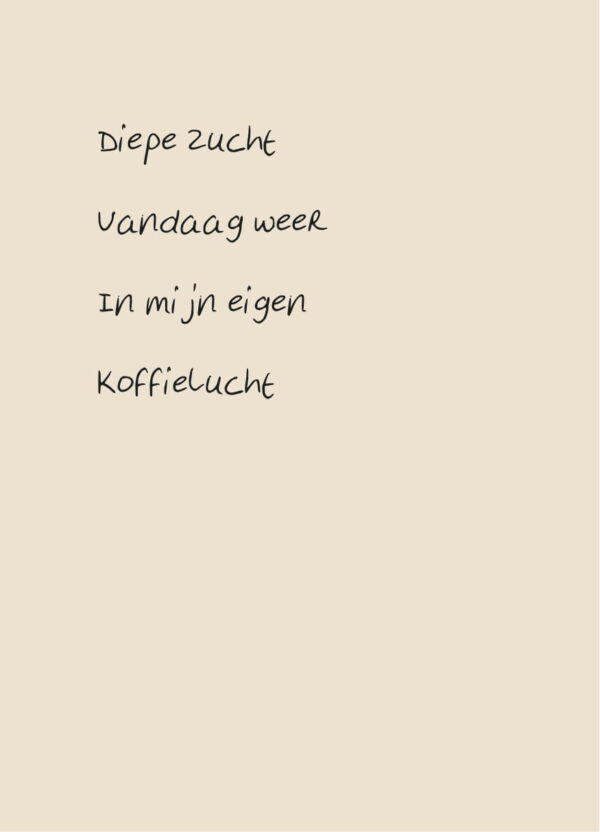 Diepe zucht
Vandaag weer
In mijn eigen
Koffielucht